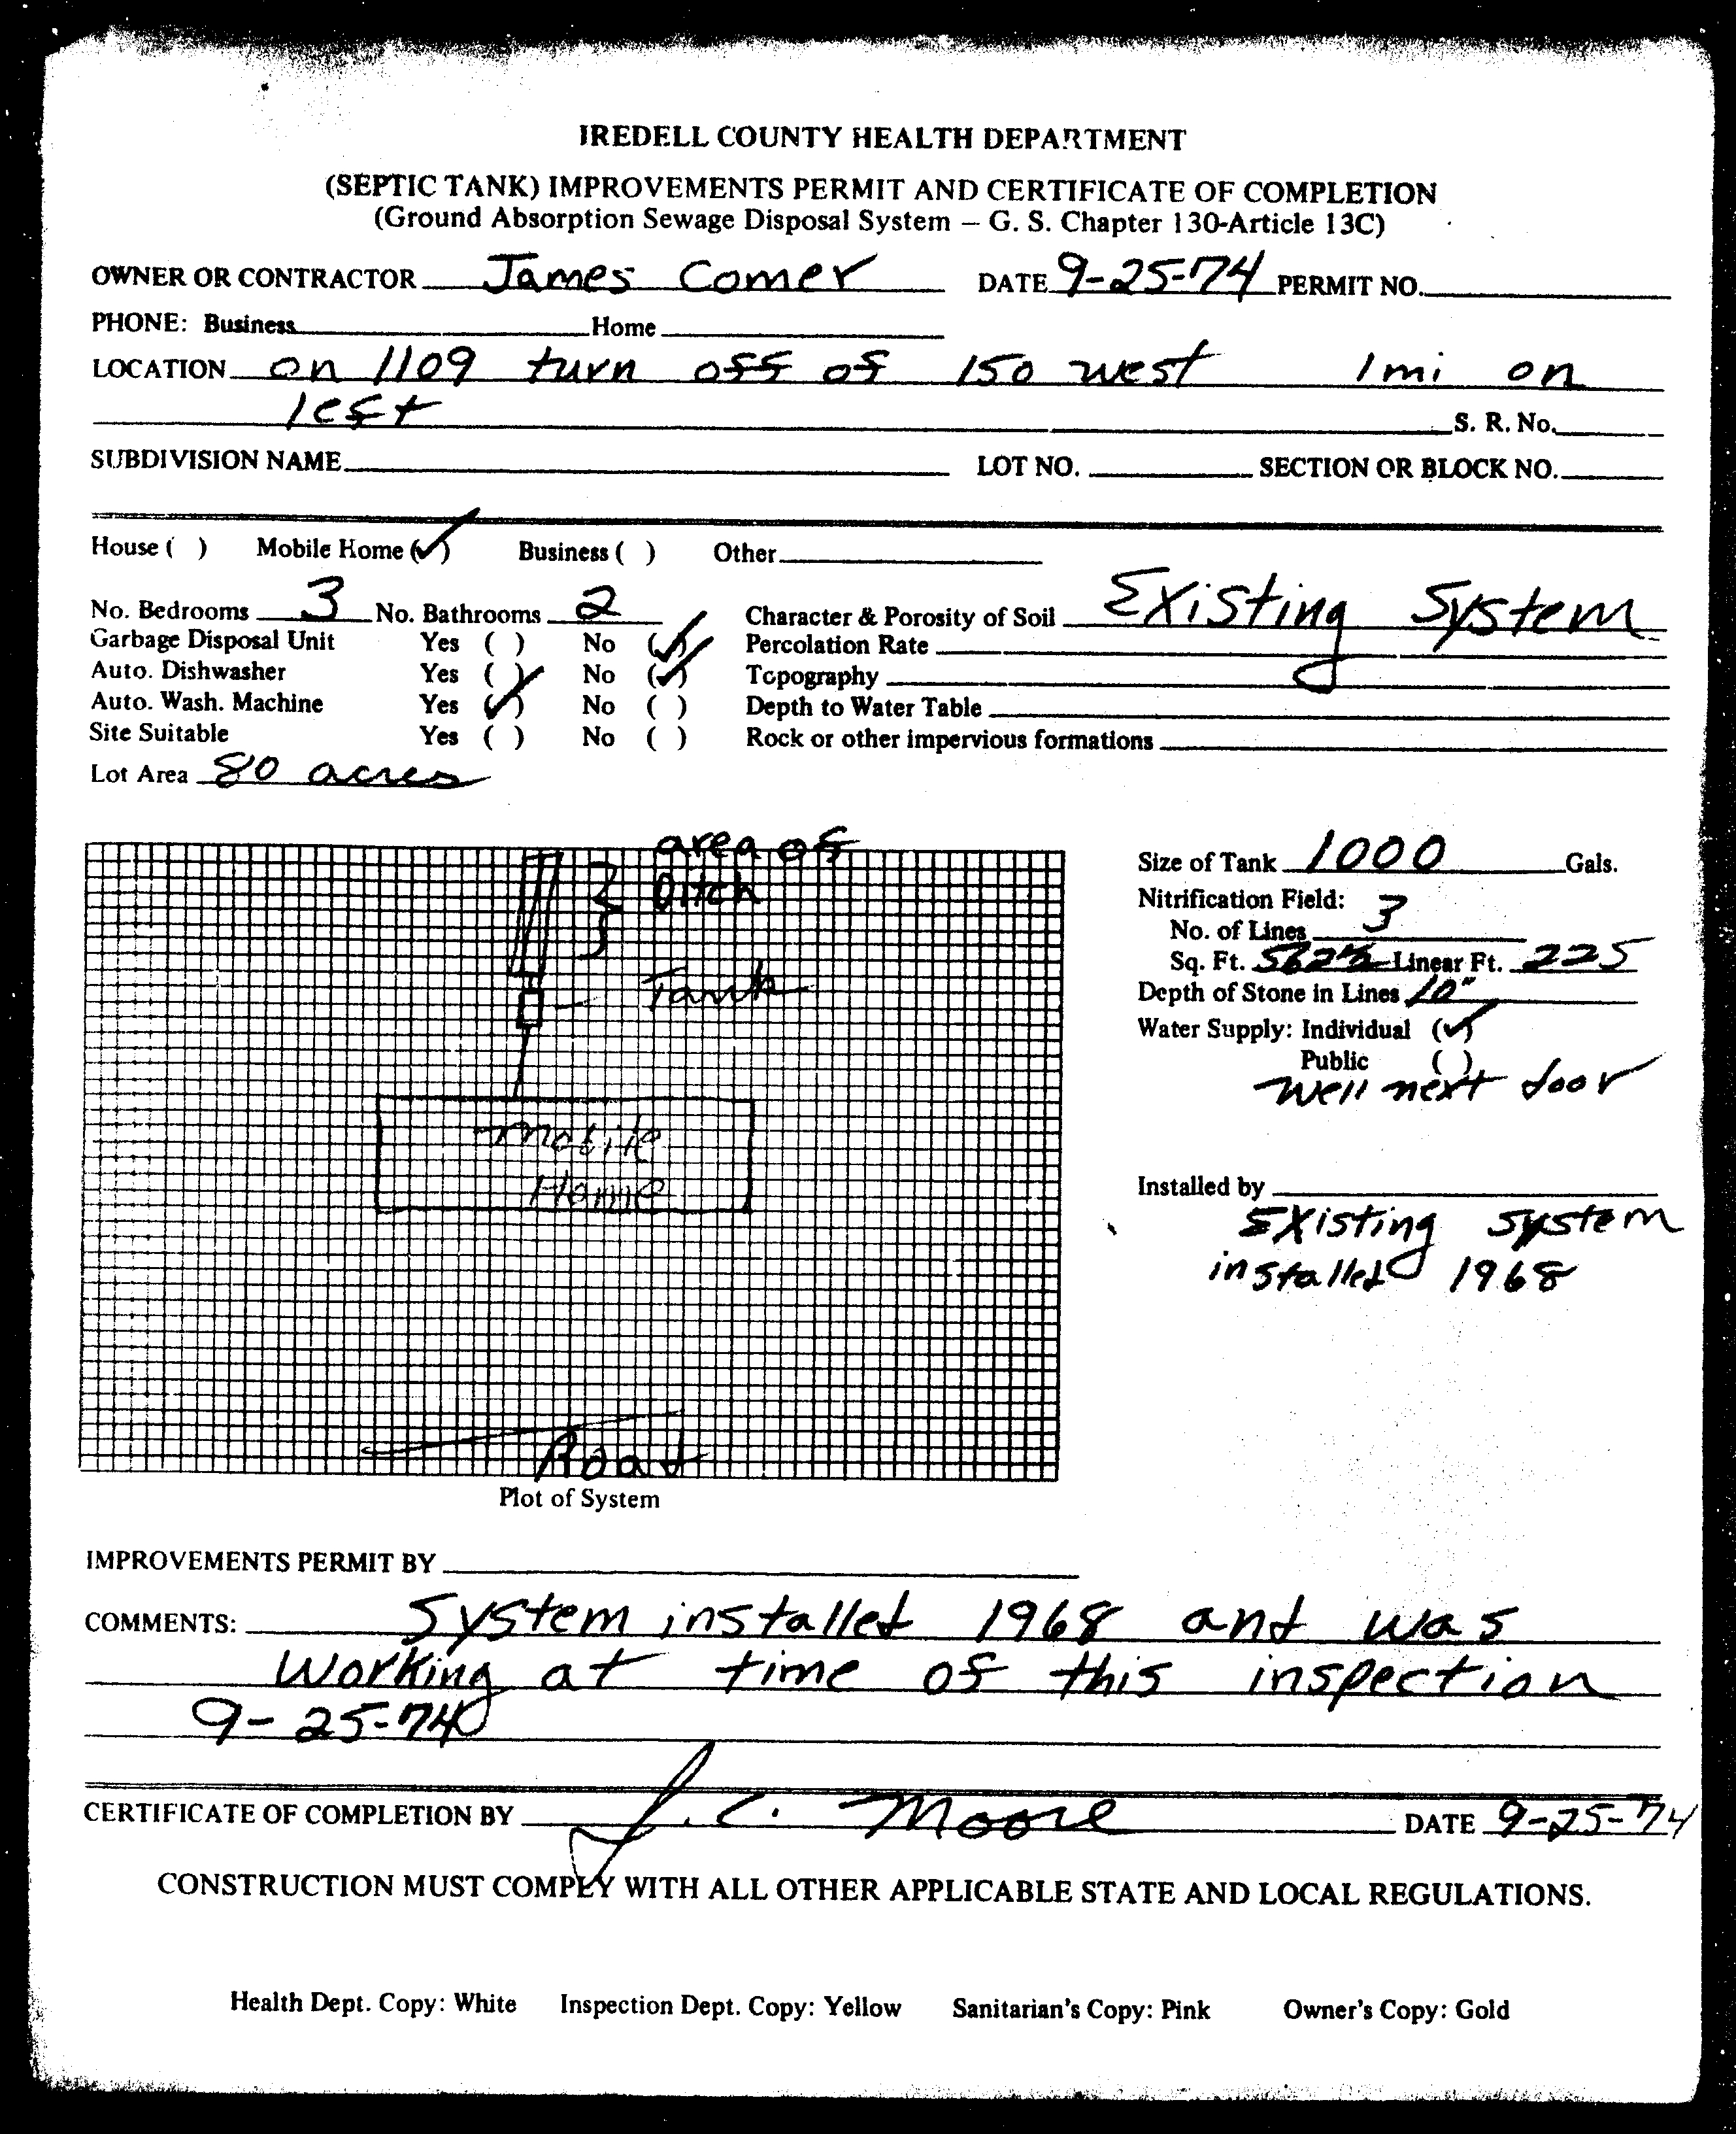 IREDELL COUNTY HEALTH DEPARTMENT
(SEPTIC TANK) IMPROVEMENTS PERMIT AND CERTIFICATE OF COMPLETION
(Ground Absorption Sewage Disposal System – G. S. Chapter 130-Article 13C)
OWNER OR CONTRACTOR James Comer DATE 9-25-74 PERMIT NO.
PHONE: Business Home
LOCATION on 1109 turn off of 150 west 1 mi on
left S. R. No.
SUBDIVISION NAME LOT NO. SECTION OR BLOCK NO.
House ( ) Mobile Home (✓) Business ( ) Other
No. Bedrooms 3 No. Bathrooms 2 Character & Porosity of Soil Existing System
Garbage Disposal Unit Yes ( ) No (✓) Percolation Rate
Auto. Dishwasher Yes ( ) No (✓) Topography
Auto. Wash. Machine Yes (✓) No ( ) Depth to Water Table
Site Suitable Yes ( ) No ( ) Rock or other impervious formations
Lot Area 80 acres
area of
Ditch
Tank
Mobile
Home
Road
Plot of System
Size of Tank 1000 Gals.
Nitrification Field:
No. of Lines 3
Sq. Ft. 562½ Linear Ft. 225
Depth of Stone in Lines 10"
Water Supply: Individual (✓)
Public ( )
Well next door
Installed by
Existing system
installed 1968
IMPROVEMENTS PERMIT BY
COMMENTS: System installed 1968 and was
working at time of this inspection
9-25-74
CERTIFICATE OF COMPLETION BY J. C. Moore DATE 9-25-74
CONSTRUCTION MUST COMPLY WITH ALL OTHER APPLICABLE STATE AND LOCAL REGULATIONS.
Health Dept. Copy: White Inspection Dept. Copy: Yellow Sanitarian's Copy: Pink Owner's Copy: Gold